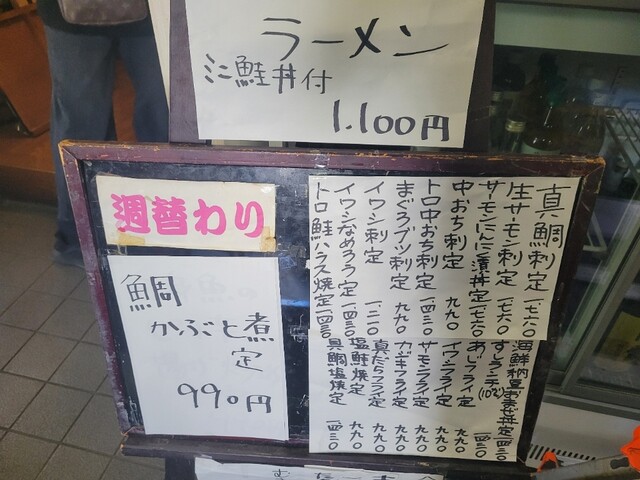 ラーメン
ミニ鮭丼付
1.100円
週替わり
鯛
かぶと煮
定
990円
真鯛刺定 一.七六〇
生サーモン刺定 一.七六〇
サーモンにんにく漬丼定 一七六〇
中おち刺定 九九〇
トロ中おち刺定 一.四三〇
まぐろブツ刺定 九九〇
イワシ刺定 一.一二〇
イワシなめろう定 一四三〇
トロ鮭ハラス焼定 一四三〇
海鮮納豆おまぜ丼定 一四三〇
すしランチ(10ヶ) 一.四三〇
あじフライ定 九九〇
イワシフライ定 九九〇
サーモンフライ定 九九〇
カジキフライ定 九九〇
真たらフライ定 九九〇
塩鮭焼定 九九〇
真鯛塩焼定 一四三〇